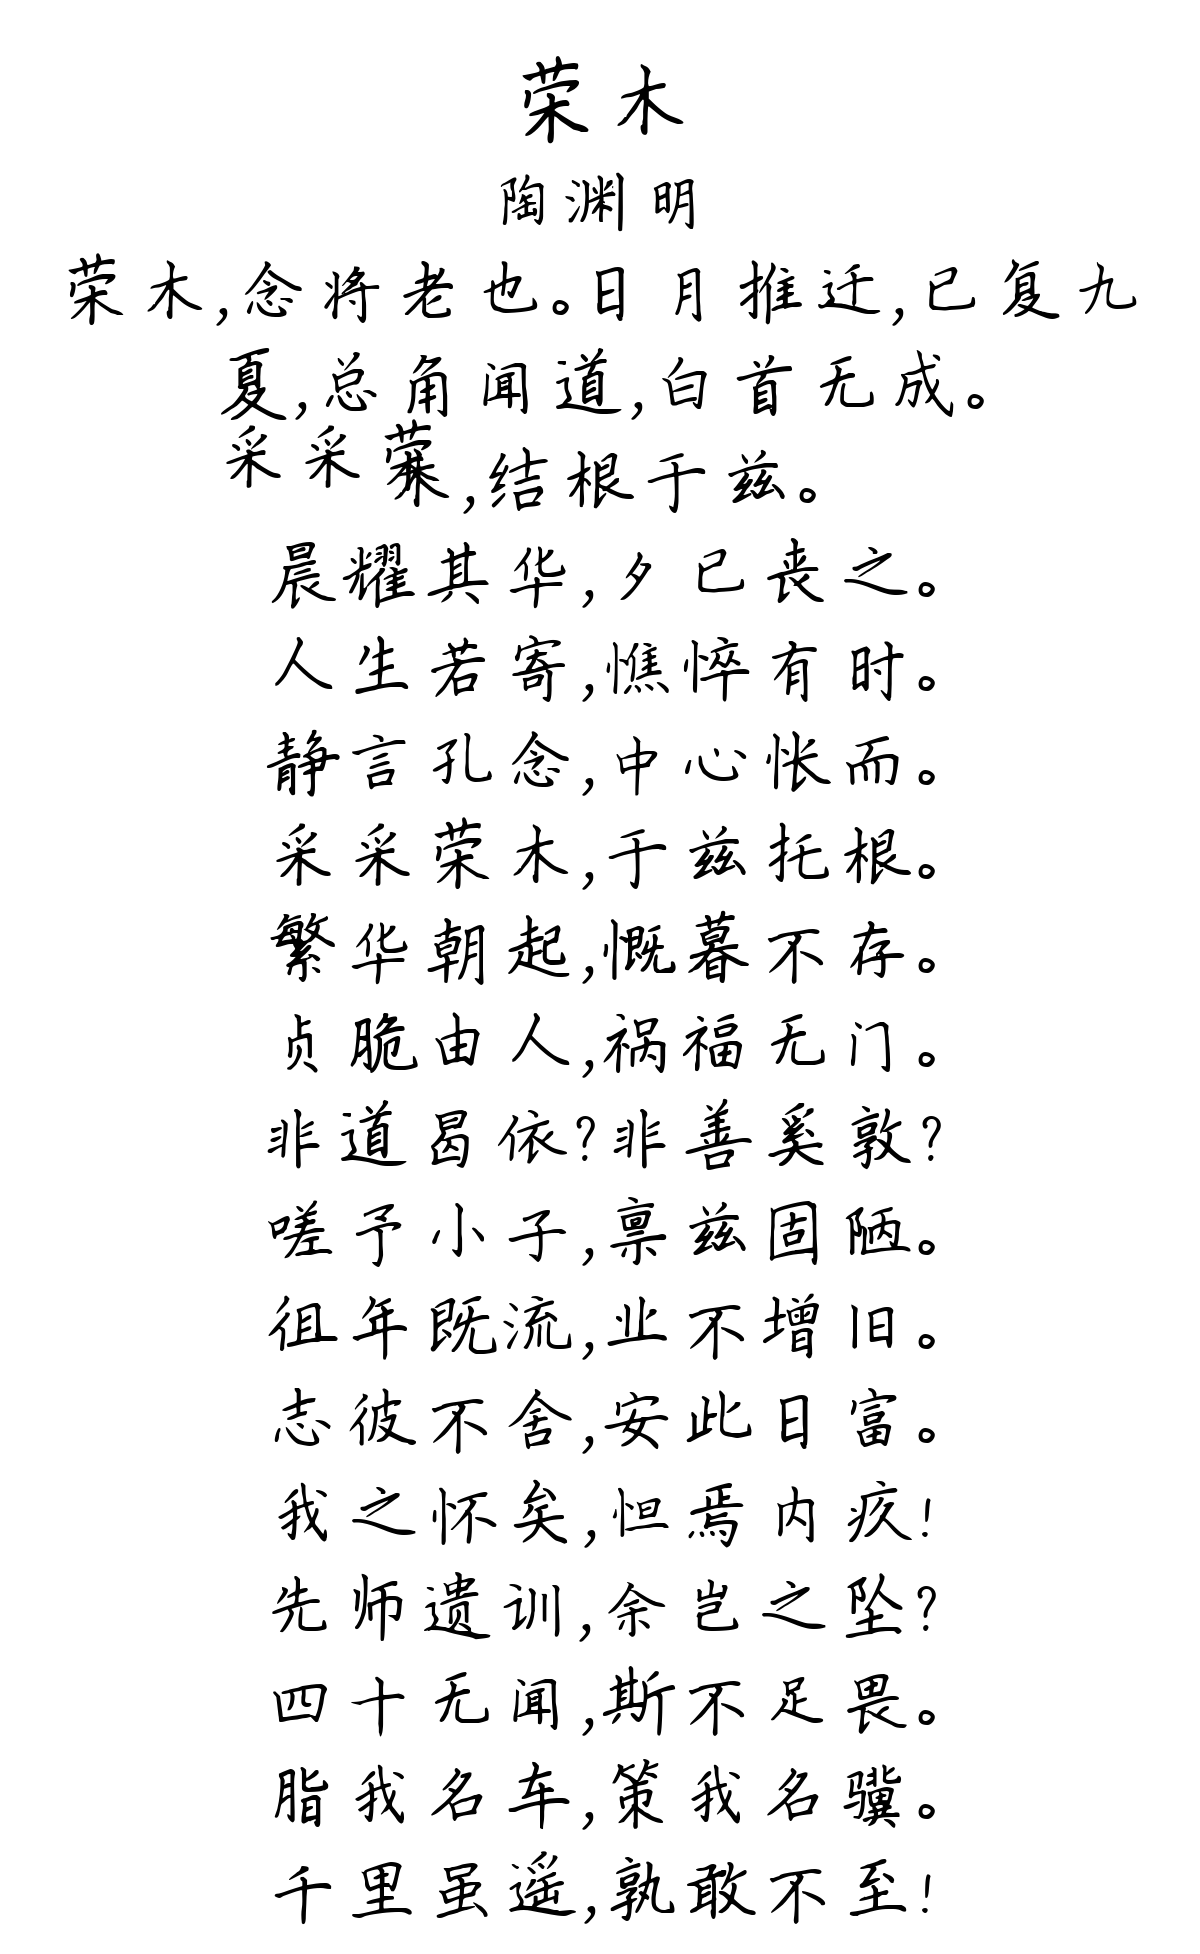 荣木
陶渊明
荣木,念将老也。日月推迁,已复九
夏,总角闻道,白首无成。
采采荣木,结根于兹。
晨耀其华,夕已丧之。
人生若寄,憔悴有时。
静言孔念,中心怅而。
采采荣木,于兹托根。
繁华朝起,慨暮不存。
贞脆由人,祸福无门。
非道曷依?非善奚敦?
嗟予小子,禀兹固陋。
徂年既流,业不增旧。
志彼不舍,安此日富。
我之怀矣,怛焉内疚!
先师遗训,余岂之坠?
四十无闻,斯不足畏。
脂我名车,策我名骥。
千里虽遥,孰敢不至!